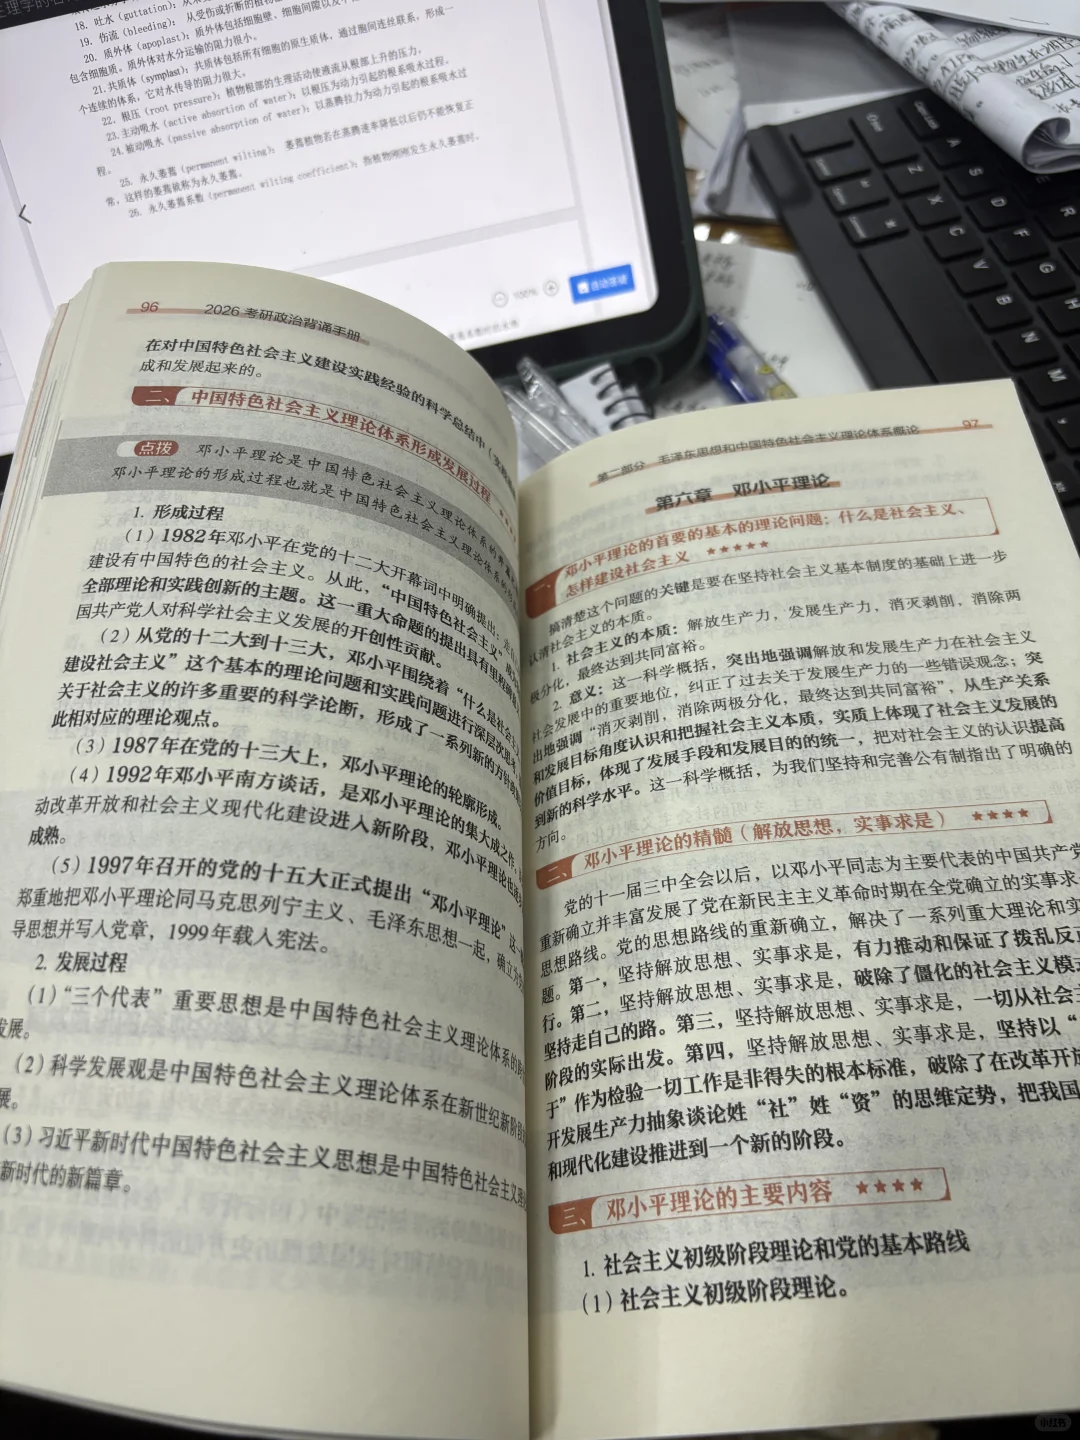 18. 吐水（guttation）：从
19. 伤流（bleeding）： 从受伤或折断的植物
20. 质外体（apoplast）：质外体包括细胞壁、细胞间隙以及
包含细胞质。质外体对水分运输的阻力很小。
21.共质体（symplast）：共质体包括所有细胞的原生质体，通过胞间连丝联系，形成一
个连续的体系，它对水传导的阻力很大。
22．根压（root pressure）：植物根部的生理活动使液流从根部上升的压力。
23.主动吸水（active absortion of water）：以根压为动力引起的根系吸水过程。
24.被动吸水（passive absorption of water）：以蒸腾拉力为动力引起的根系吸水过
程。
25. 永久萎蔫（permanent wilting）： 萎蔫植物若在蒸腾速率降低以后仍不能恢复正
常，这样的萎蔫就称为永久萎蔫。
26. 永久萎蔫系数（permanent wilting coefficient）：指植物刚刚发生永久萎蔫时，
100%
96 2026 考研政治背诵手册
在对中国特色社会主义建设实践经验的科学总结中（
成和发展起来的。
二、 中国特色社会主义理论体系形成发展过程
点拨 邓小平理论是中国特色社会主义理论体系的
邓小平理论的形成过程也就是中国特色社会主义理论体系的
1. 形成过程
（1）1982年邓小平在党的十二大开幕词中明确提出：
建设有中国特色的社会主义。从此，“中国特色社会主义”
全部理论和实践创新的主题。这一重大命题的提出具有里程碑
国共产党人对科学社会主义发展的开创性贡献。
（2）从党的十二大到十三大，邓小平围绕着“什么是社会主
建设社会主义”这个基本的理论问题和实践问题进行深层次思考，
关于社会主义的许多重要的科学论断，形成了一系列新的方针
此相对应的理论观点。
（3）1987年在党的十三大上，邓小平理论的轮廓形成。
（4）1992年邓小平南方谈话，是邓小平理论的集大成之作，
动改革开放和社会主义现代化建设进入新阶段，邓小平理论也逐
成熟。
（5）1997年召开的党的十五大正式提出“邓小平理论”这一
郑重地把邓小平理论同马克思列宁主义、毛泽东思想一起，确立为
导思想并写入党章，1999年载入宪法。
2. 发展过程
（1）“三个代表”重要思想是中国特色社会主义理论体系的
发展。
（2）科学发展观是中国特色社会主义理论体系在新世纪新阶段
展。
（3）习近平新时代中国特色社会主义思想是中国特色社会主义理
新时代的新篇章。
第二部分 毛泽东思想和中国特色社会主义理论体系概论 97
第六章 邓小平理论
一、 邓小平理论的首要的基本的理论问题：什么是社会主义、
怎样建设社会主义 ★★★★★
搞清楚这个问题的关键是要在坚持社会主义基本制度的基础上进一步
认清社会主义的本质。
1. 社会主义的本质：解放生产力，发展生产力，消灭剥削，消除两
极分化，最终达到共同富裕。
2. 意义：这一科学概括，突出地强调解放和发展生产力在社会主义
社会发展中的重要地位，纠正了过去关于发展生产力的一些错误观念；突
出地强调“消灭剥削，消除两极分化，最终达到共同富裕”，从生产关系
和发展目标角度认识和把握社会主义本质，实质上体现了社会主义发展的
价值目标，体现了发展手段和发展目的的统一，把对社会主义的认识提高
到新的科学水平。这一科学概括，为我们坚持和完善公有制指出了明确的
方向。
二、 邓小平理论的精髓（解放思想，实事求是） ★★★★
党的十一届三中全会以后，以邓小平同志为主要代表的中国共产党
重新确立并丰富发展了党在新民主主义革命时期在全党确立的实事求
思想路线。党的思想路线的重新确立，解决了一系列重大理论和实
题。第一，坚持解放思想、实事求是，有力推动和保证了拨乱反正
行。第二，坚持解放思想、实事求是，破除了僵化的社会主义模式
坚持走自己的路。第三，坚持解放思想、实事求是，一切从社会主
阶段的实际出发。第四，坚持解放思想、实事求是，坚持以“
于”作为检验一切工作是非得失的根本标准，破除了在改革开放
开发展生产力抽象谈论姓“社”姓“资”的思维定势，把我国
和现代化建设推进到一个新的阶段。
三、 邓小平理论的主要内容 ★★★★
1. 社会主义初级阶段理论和党的基本路线
（1）社会主义初级阶段理论。
小红书